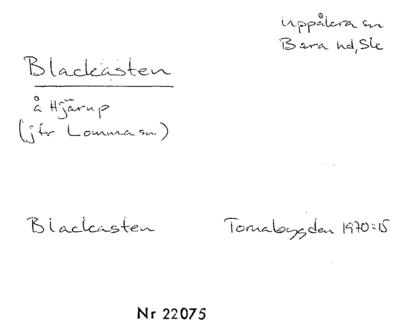 Uppåkra sn
Bara hd, Sk
Blackasten
å Hjärup
(jfr Lomma sn)
Blackasten Tornabygden 1970:15
Nr 22075